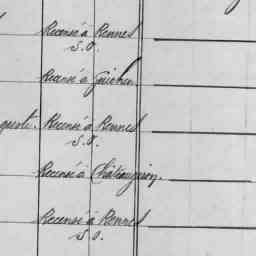 Recensé à Rennes
S.O.
Recensé à Guichen
Recensé à Rennes
S.O.
Recensé à Châteaugiron.
Recensé à Rennes
S.O.